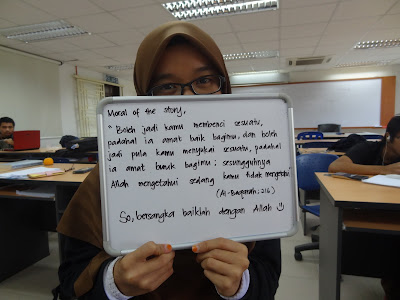 Moral of the story,
" Boleh jadi kamu membenci sesuatu,
padahal ia amat baik bagimu, dan boleh
jadi pula kamu menyukai sesuatu, padahal
ia amat buruk bagimu ; sesungguhnya
Allah mengetahui sedang kamu tidak mengetahui"
(Al-Baqarah : 216)
So, bersangka baiklah dengan Allah :)